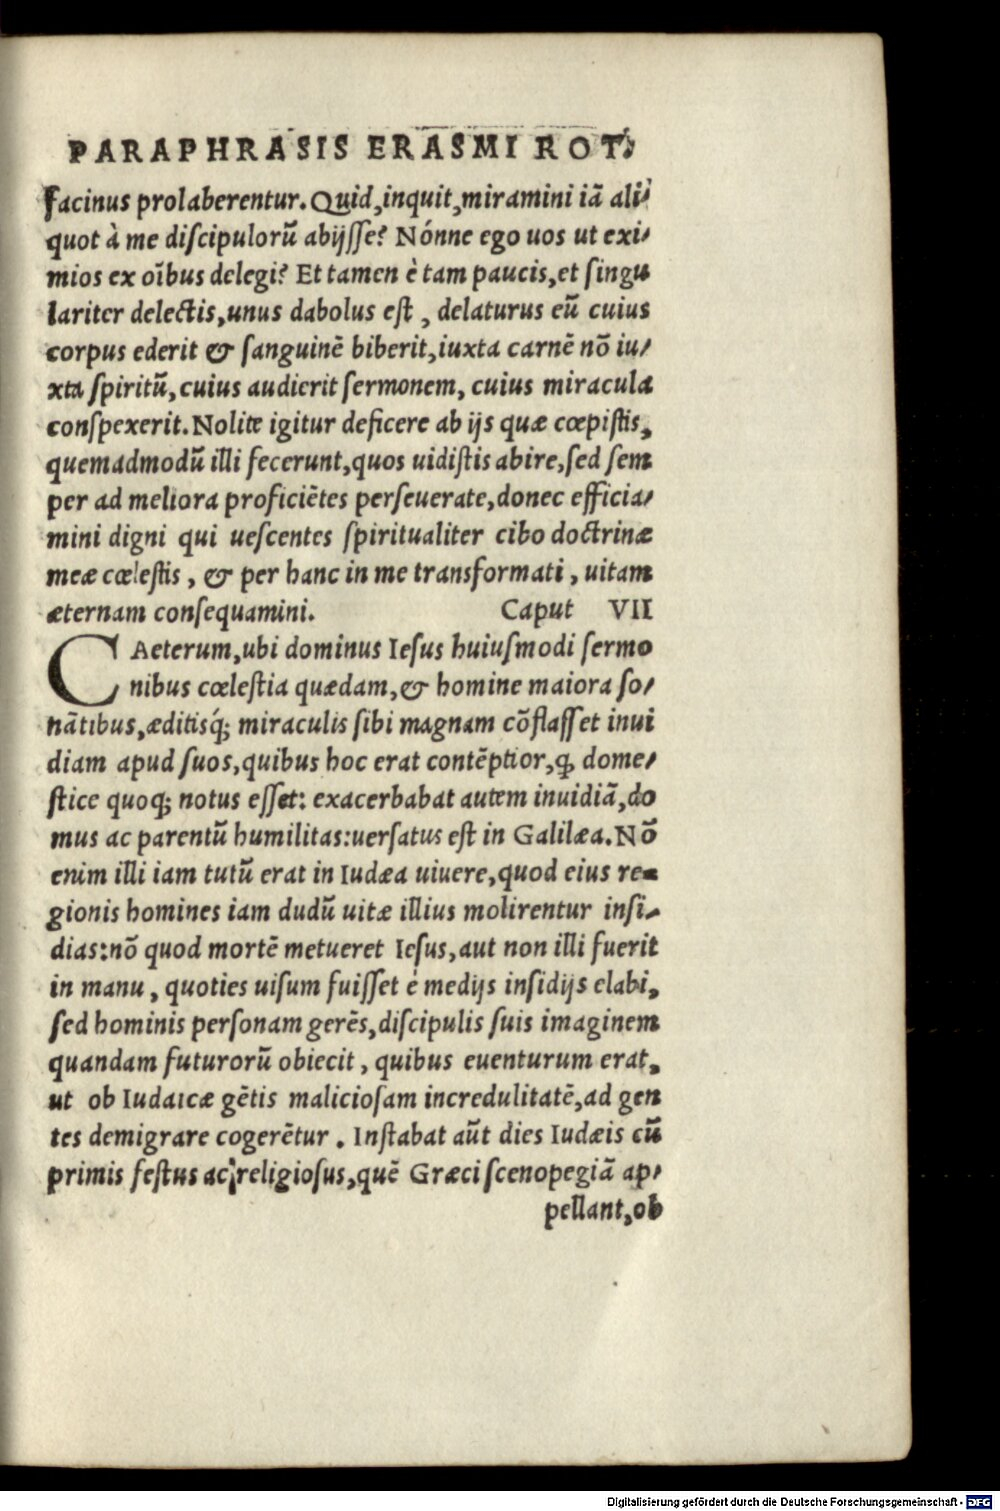 PARAPHRASIS ERASMI ROT.
facinus prolaberentur. Quid, inquit, miramini iā ali⸗
quot à me diſcipulorū abijſſe? Nónne ego uos ut exi⸗
mios ex oībus delegi? Et tamen è tam paucis, et ſingu
lariter delectis, unus dabolus eſt, delaturus eū cuius
corpus ederit & ſanguinē biberit, iuxta carnē nō iu⸗
xta ſpiritū, cuius audierit ſermonem, cuius miracula
conſpexerit. Nolite igitur deficere ab ijs quæ cœpiſtis,
quemadmodū illi fecerunt, quos uidiſtis abire, ſed ſem
per ad meliora proficiētes perſeuerate, donec efficia⸗
mini digni qui ueſcentes ſpiritualiter cibo doctrinæ
meæ cœleſtis, & per hanc in me transformati, uitam
æternam conſequamini. Caput VII
CAeterum, ubi dominus Ieſus huiuſmodi ſermo
nibus cœleſtia quædam, & homine maiora ſo⸗
nātibus, æditisq́; miraculis ſibi magnam cōflaſſet inui
diam apud ſuos, quibus hoc erat contēptior, ꝙ dome⸗
ſtice quoq; notus eſſet: exacerbabat autem inuidiā, do
mus ac parentū humilitas: uerſatus eſt in Galilæa. Nō
enim illi iam tutū erat in Iudæa uiuere, quod eius re⸗
gionis homines iam dudū uitæ illius molirentur inſi⸗
dias: nō quod mortē metueret Ieſus, aut non illi fuerit
in manu, quoties uiſum fuiſſet è medijs inſidijs elabi,
ſed hominis perſonam gerēs, diſcipulis ſuis imaginem
quandam futurorū obiecit, quibus euenturum erat,
ut ob Iudaicæ gētis malicioſam incredulitatē, ad gen
tes demigrare cogerētur. Inſtabat aūt dies Iudæis cū
primis feſtus ac religioſus, quē Græci ſcenopegiā ap⸗
pellant, ob
Digitalisierung gefördert durch die Deutsche Forschungsgemeinschaft - DFG